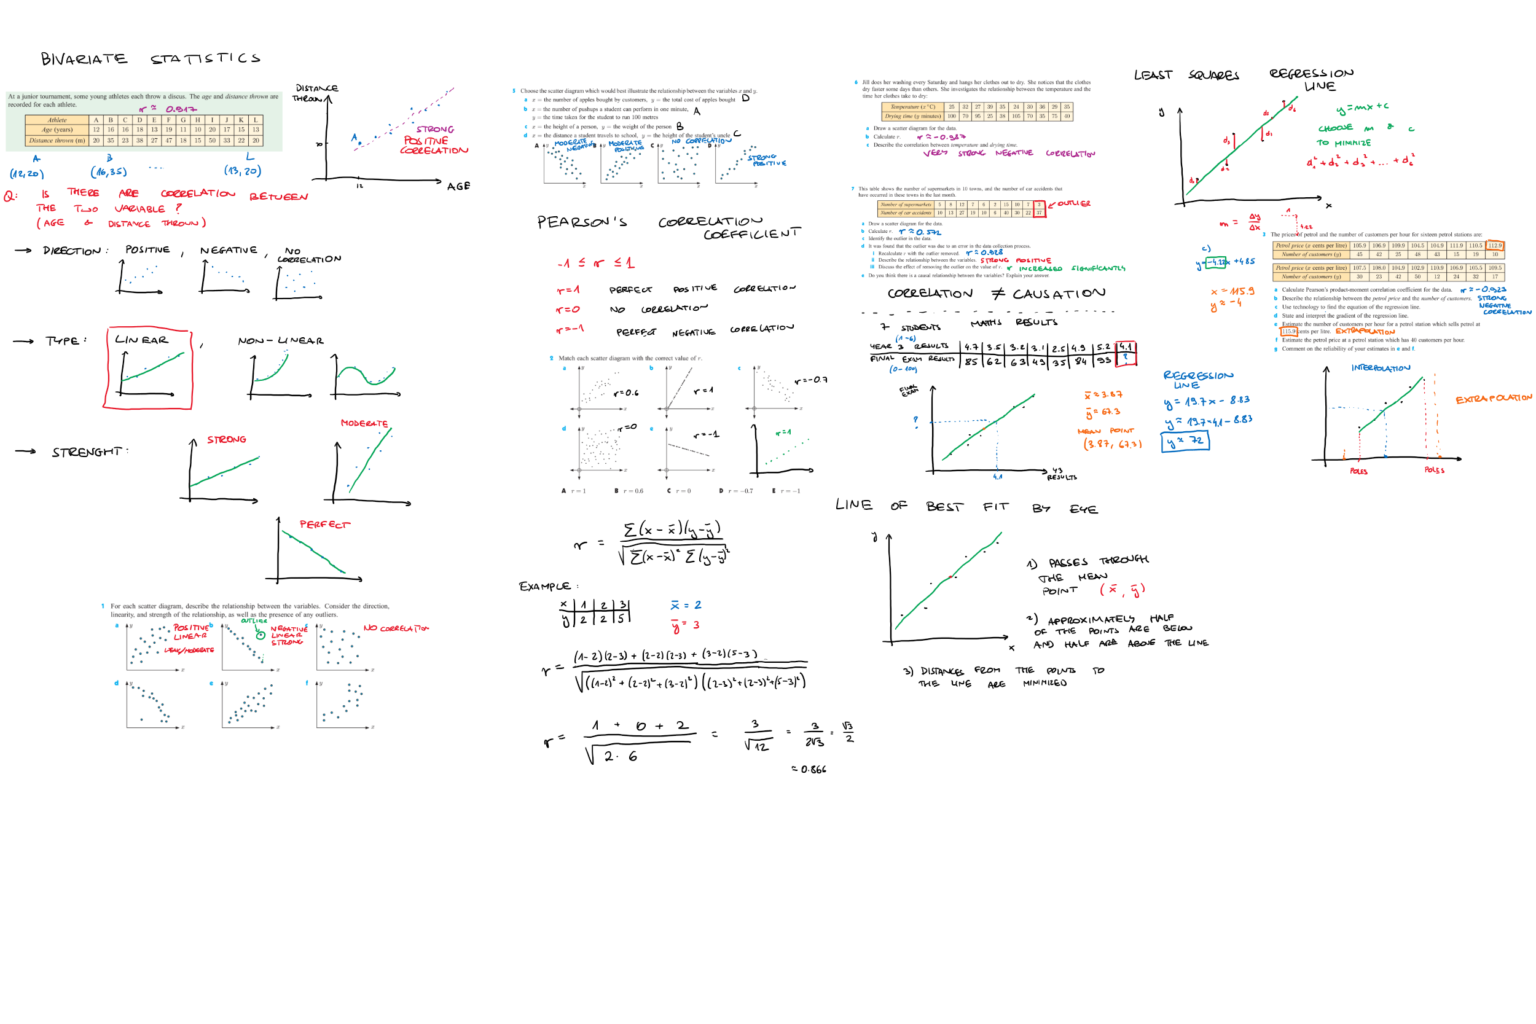 BIVARIATE STATISTICS
At a junior tournament, some young athletes each throw a discus. The age and distance thrown are
recorded for each athlete.
r ≈ 0.917
Athlete A B C D E F G H I J K L
Age (years) 12 16 16 18 13 19 11 10 20 17 15 13
Distance thrown (m) 20 35 23 38 27 47 18 15 50 33 22 20
A B L
(12,20) (16,35) ... (13,20)
Q: IS THERE ARE CORRELATION BETWEEN
THE TWO VARIABLE?
(AGE & DISTANCE THROWN)
DISTANCE
THROWN
A
STRONG
POSITIVE
CORRELATION
12
AGE
→ DIRECTION: POSITIVE, NEGATIVE, NO
CORRELATION
→ TYPE: LINEAR, NON-LINEAR
→ STRENGHT:
STRONG
MODERATE
PERFECT
1 For each scatter diagram, describe the relationship between the variables. Consider the direction,
linearity, and strength of the relationship, as well as the presence of any outliers.
a POSITIVE
LINEAR
WEAK/MODERATE
b OUTLIER
NEGATIVE
LINEAR
STRONG
c NO CORRELATION
d e f
3 Choose the scatter diagram which would best illustrate the relationship between the variables x and y.
a x = the number of apples bought by customers, y = the total cost of apples bought D
b x = the number of pushups a student can perform in one minute, A
y = the time taken for the student to run 100 metres
c x = the height of a person, y = the weight of the person B
d x = the distance a student travels to school, y = the height of the student's uncle C
A MODERATE
NEGATIVE
B MODERATE
POSITIVE
C NO CORRELATION
D STRONG
POSITIVE
PEARSON'S CORRELATION
COEFFICIENT
-1 ≤ r ≤ 1
r=1 PERFECT POSITIVE CORRELATION
r=0 NO CORRELATION
r=-1 PERFECT NEGATIVE CORRELATION
2 Match each scatter diagram with the correct value of r.
a r=0.6
b r=1
c r=-0.7
d r=0
e r=-1
r≈1
A r = 1 B r = 0.6 C r = 0 D r = -0.7 E r = -1
r = Σ(x-x̄)(y-ȳ) / √Σ(x-x̄)² Σ(y-ȳ)²
EXAMPLE:
x | 1 | 2 | 3
y | 2 | 2 | 5
x̄ = 2
ȳ = 3
r = (1-2)(2-3) + (2-2)(2-3) + (3-2)(5-3) / √((1-2)² + (2-2)² + (3-2)²)((2-3)² + (2-3)² + (5-3)²)
r = 1 + 0 + 2 / √2·6 = 3/√12 = 3/2√3 = √3/2
≈ 0.866
6 Jill does her washing every Saturday and hangs her clothes out to dry. She notices that the clothes
dry faster some days than others. She investigates the relationship between the temperature and the
time her clothes take to dry:
Temperature (x °C) 25 32 27 39 35 24 30 36 29 35
Drying time (y minutes) 100 70 95 25 38 105 70 35 75 40
a Draw a scatter diagram for the data.
b Calculate r.
c Describe the correlation between temperature and drying time.
VERY STRONG NEGATIVE CORRELATION
7 This table shows the number of supermarkets in 10 towns, and the number of car accidents that
have occurred in these towns in the last month.
Number of supermarkets 5 8 12 7 6 2 15 10 7 3
Number of car accidents 10 13 27 19 10 6 40 30 22 37
← OUTLIER
a Draw a scatter diagram for the data.
b Calculate r. r ≈ 0.572
c Identify the outlier in the data.
d It was found that the outlier was due to an error in the data collection process.
i Recalculate r with the outlier removed. r ≈ 0.928
ii Describe the relationship between the variables. STRONG POSITIVE
iii Discuss the effect of removing the outlier on the value of r. r INCREASED SIGNIFICANTLY
e Do you think there is a causal relationship between the variables? Explain your answer.
CORRELATION ≠ CAUSATION
7 STUDENTS MATHS RESULTS
(1-6)
YEAR 3 RESULTS | 4.7 | 3.5 | 3.2 | 3.1 | 2.5 | 4.9 | 5.2 | 4.1
FINAL EXAM RESULTS | 85 | 62 | 63 | 49 | 35 | 84 | 93 | ?
(0-100)
FINAL
EXAM
?
4.1
Y3
RESULTS
x̄ ≈ 3.87
ȳ = 67.3
MEAN POINT
(3.87, 67.3)
REGRESSION
LINE
y = 19.7x - 8.83
y = 19.7·4.1 - 8.83
y ≈ 72
LINE OF BEST FIT BY EYE
y
x
1) PASSES THROUGH
THE MEAN
POINT (x̄, ȳ)
2) APPROXIMATELY HALF
OF THE POINTS ARE BELOW
AND HALF ARE ABOVE THE LINE
3) DISTANCES FROM THE POINTS TO
THE LINE ARE MINIMIZED
LEAST SQUARES REGRESSION
LINE
y
x
y = mx + c
CHOOSE m & c
TO MINIMIZE
d₁² + d₂² + d₃² + ... + d₆²
m = Δy/Δx
c)
y = -4.23x + 485
x = 115.9
y ≈ -4
3 The prices of petrol and the number of customers per hour for sixteen petrol stations are:
Petrol price (x cents per litre) 105.9 106.9 109.9 104.5 104.9 111.9 110.5 112.9
Number of customers (y) 45 42 25 48 43 15 19 10
Petrol price (x cents per litre) 107.5 108.0 104.9 102.9 110.9 106.9 105.5 109.5
Number of customers (y) 30 23 42 50 12 24 32 17
a Calculate Pearson's product-moment correlation coefficient for the data. r ≈ -0.923
b Describe the relationship between the petrol price and the number of customers. STRONG
NEGATIVE
CORRELATION
c Use technology to find the equation of the regression line.
d State and interpret the gradient of the regression line.
e Estimate the number of customers per hour for a petrol station which sells petrol at
115.9 cents per litre. EXTRAPOLATION
f Estimate the petrol price at a petrol station which has 40 customers per hour.
g Comment on the reliability of your estimates in e and f.
INTERPOLATION
EXTRAPOLATION
POLES POLES